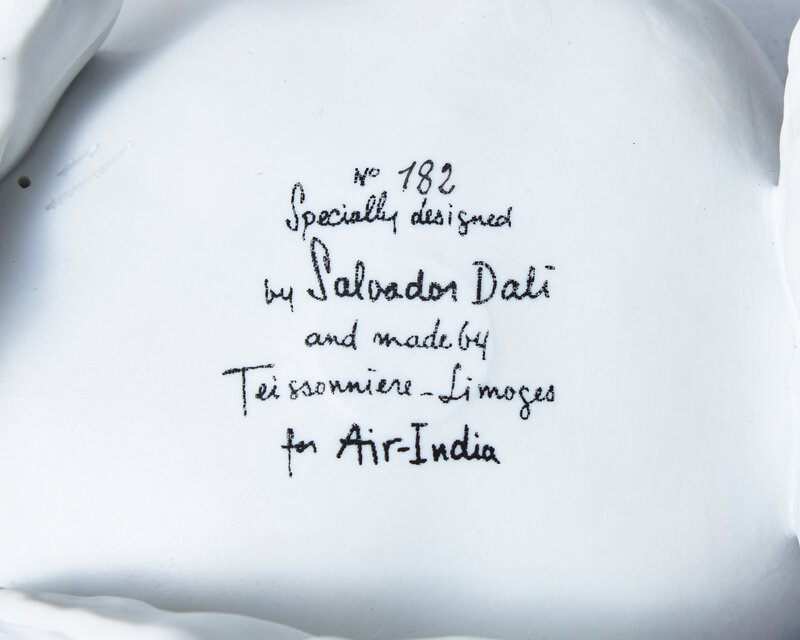 Nº 182
Specially designed
by Salvador Dali
and made by
Teissonniere-Limoges
for Air-India